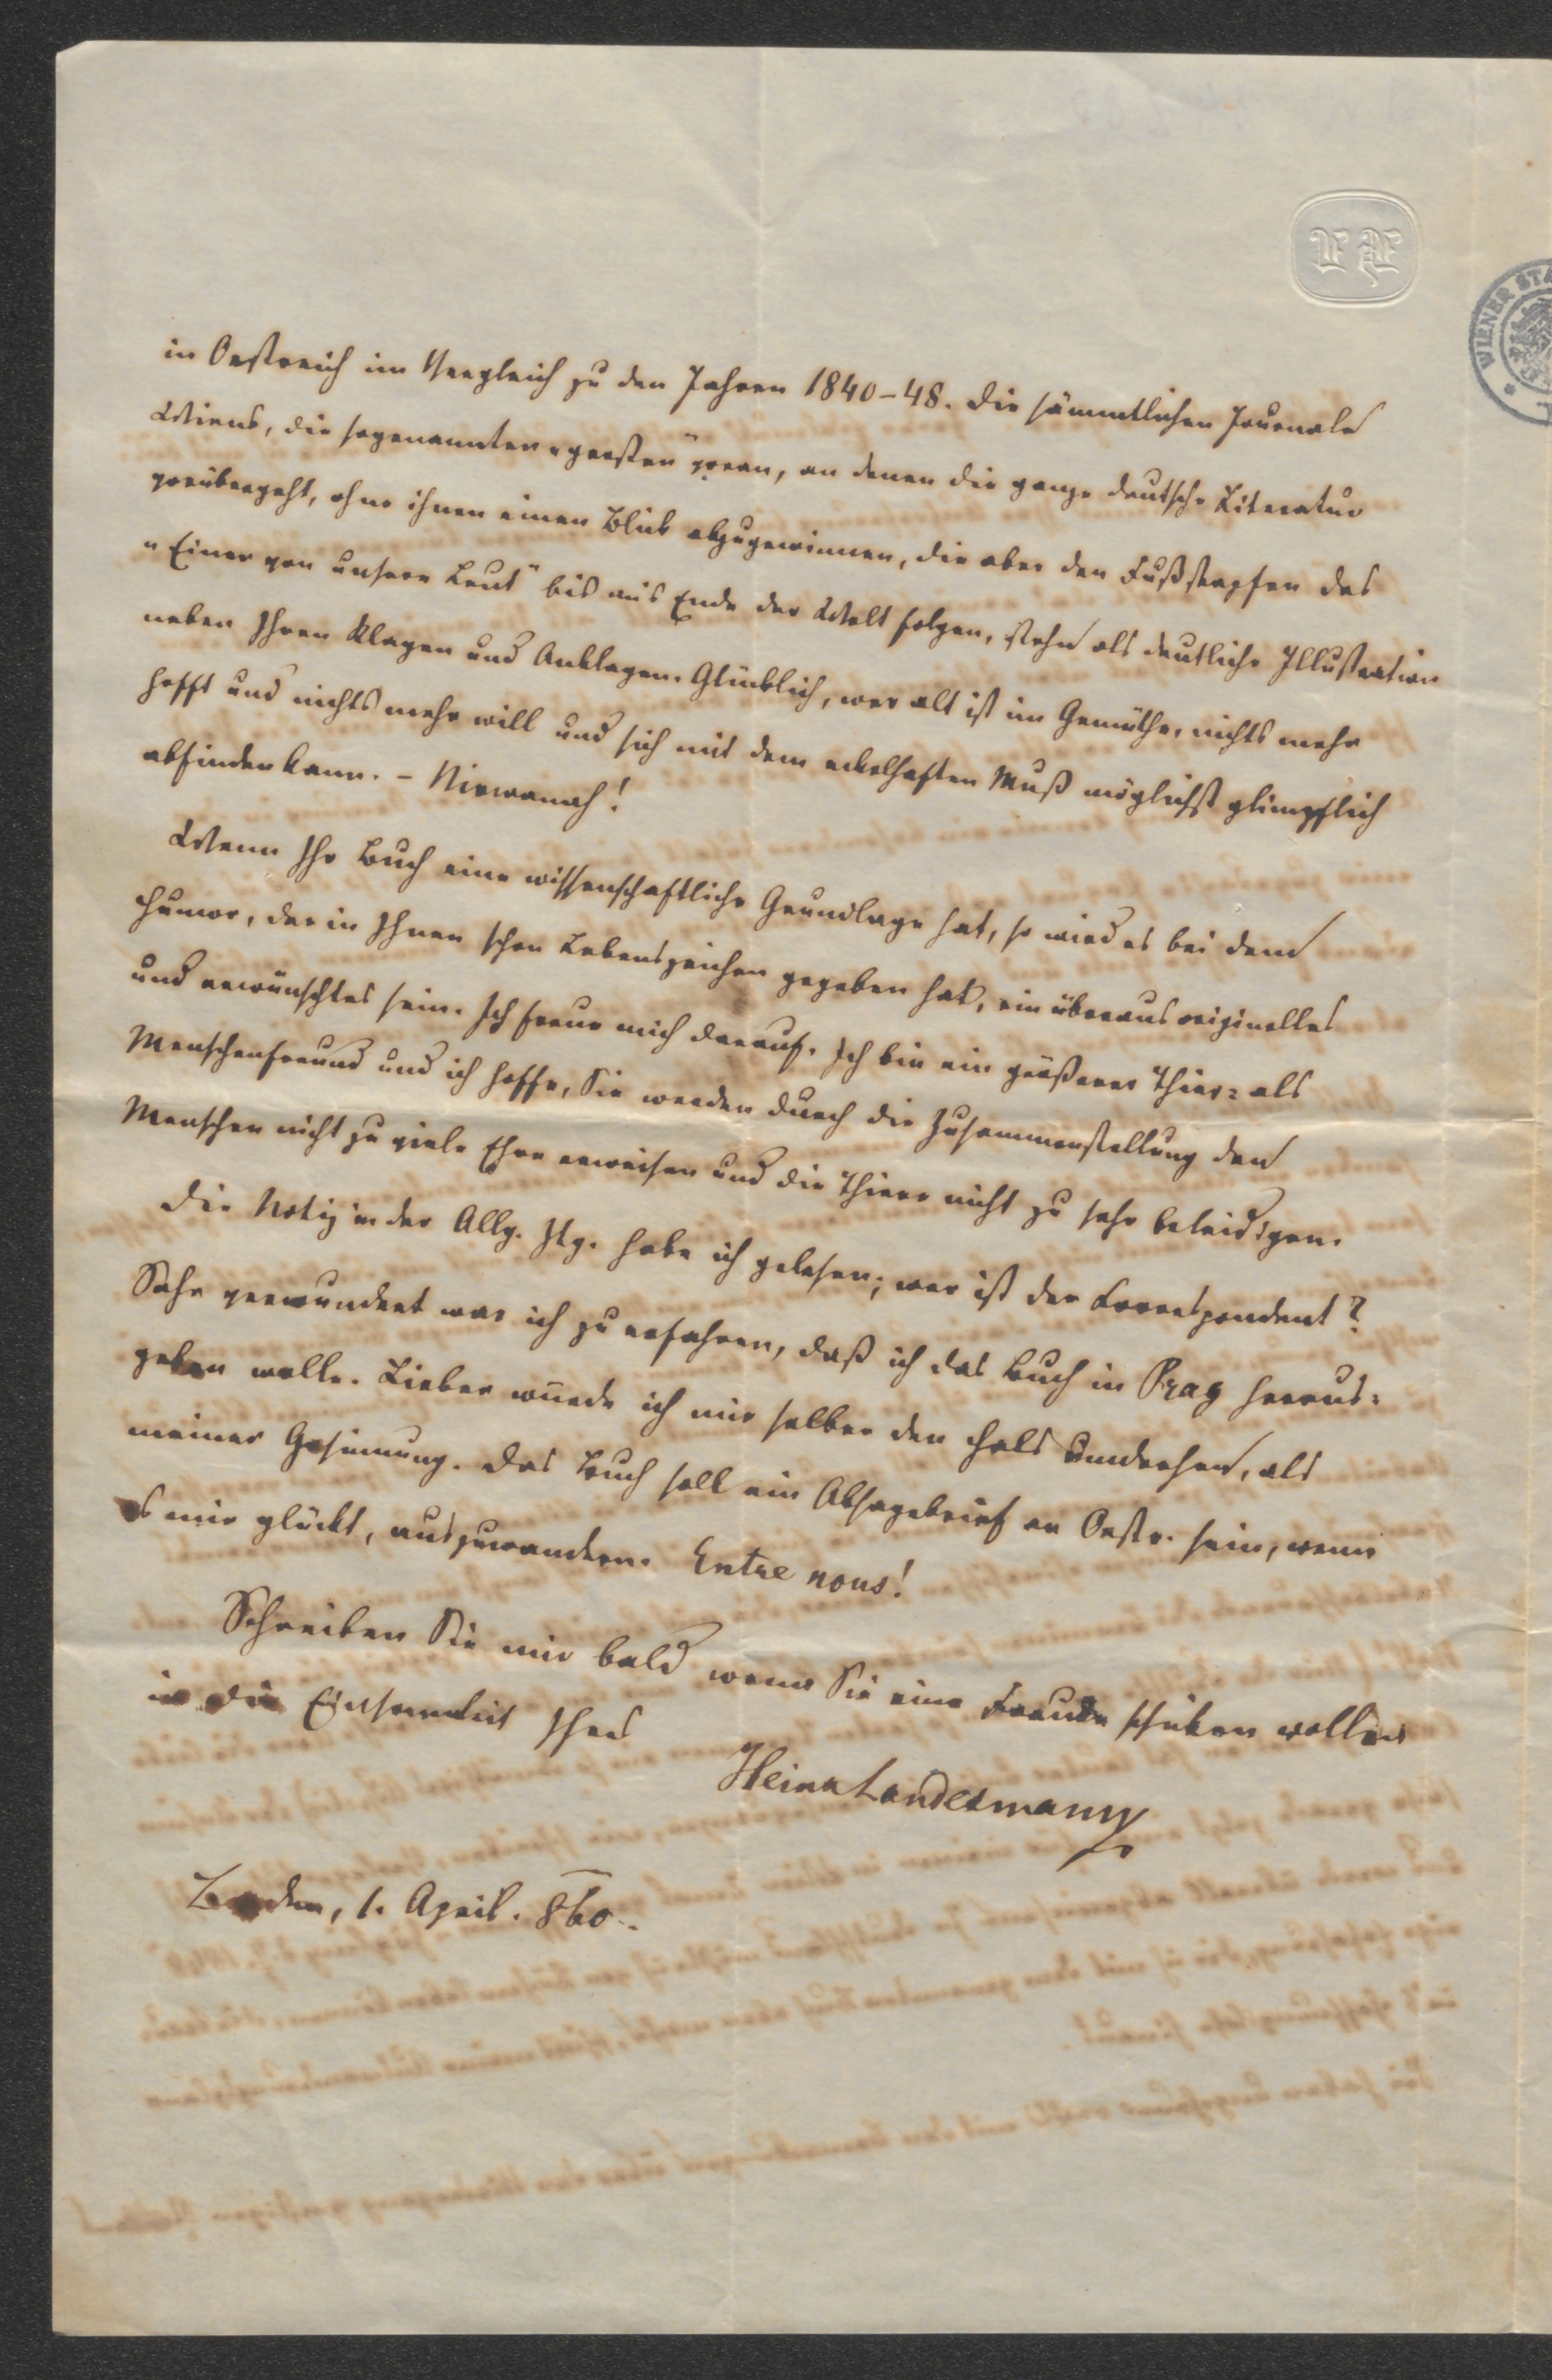 WIENER STA
in Oestreich im Vergleich zu den Jahren 1840-48. Die sämmtlichen Journale
Wiens, die sogenannten „großen“ voran, an denen die ganze deutsche Literatur
vorübergeht, ohne ihnen einen Blick abzugewinnen, die aber den Fußstapfen des
„Einer von unsere Leut“ bis an's Ende der Welt folgen, stehn als deutliche Illustration
neben Ihren Klagen und Anklagen. Glücklich, wer alt ist im Gemüthe, nichts mehr
hofft und nichts mehr will und sich mit dem eckelhaften Muß möglichst glimpflich
abfinden kann. – Nirwanah!
Wenn Ihr Buch eine wissenschaftliche Grundlage hat, so wird es bei dem
Humor, der in Ihnen schon Lebenszeichen gegeben hat, ein überaus originelles
und erwünschtes sein. Ich freue mich darauf. Ich bin ein größerer Thier= als
Menschenfreund und ich hoffe, Sie werden durch die Zusammenstellung den
Menschen nicht zu viele Ehre erweisen und die Thiere nicht zu sehr beleidigen.
Die Notiz in der Allg. Ztg. habe ich gelesen; wer ist der Correspondent?
Sehr verwundert war ich zu erfahren, daß ich das Buch in Prag heraus=
geben wolle. Lieber würde ich mir selber den Hals umdrehen, als
meiner Gesinnung. Das Buch soll ein Absagebrief an Oestr. sein, wenn
es mir glückt, auszuwandern. Entre nous!
Schreiben Sie mir bald wenn Sie eine Freude schicken wollen
in die Einsamkeit Ihres
Heinr Landesmann
Baden, 1. April. 860.